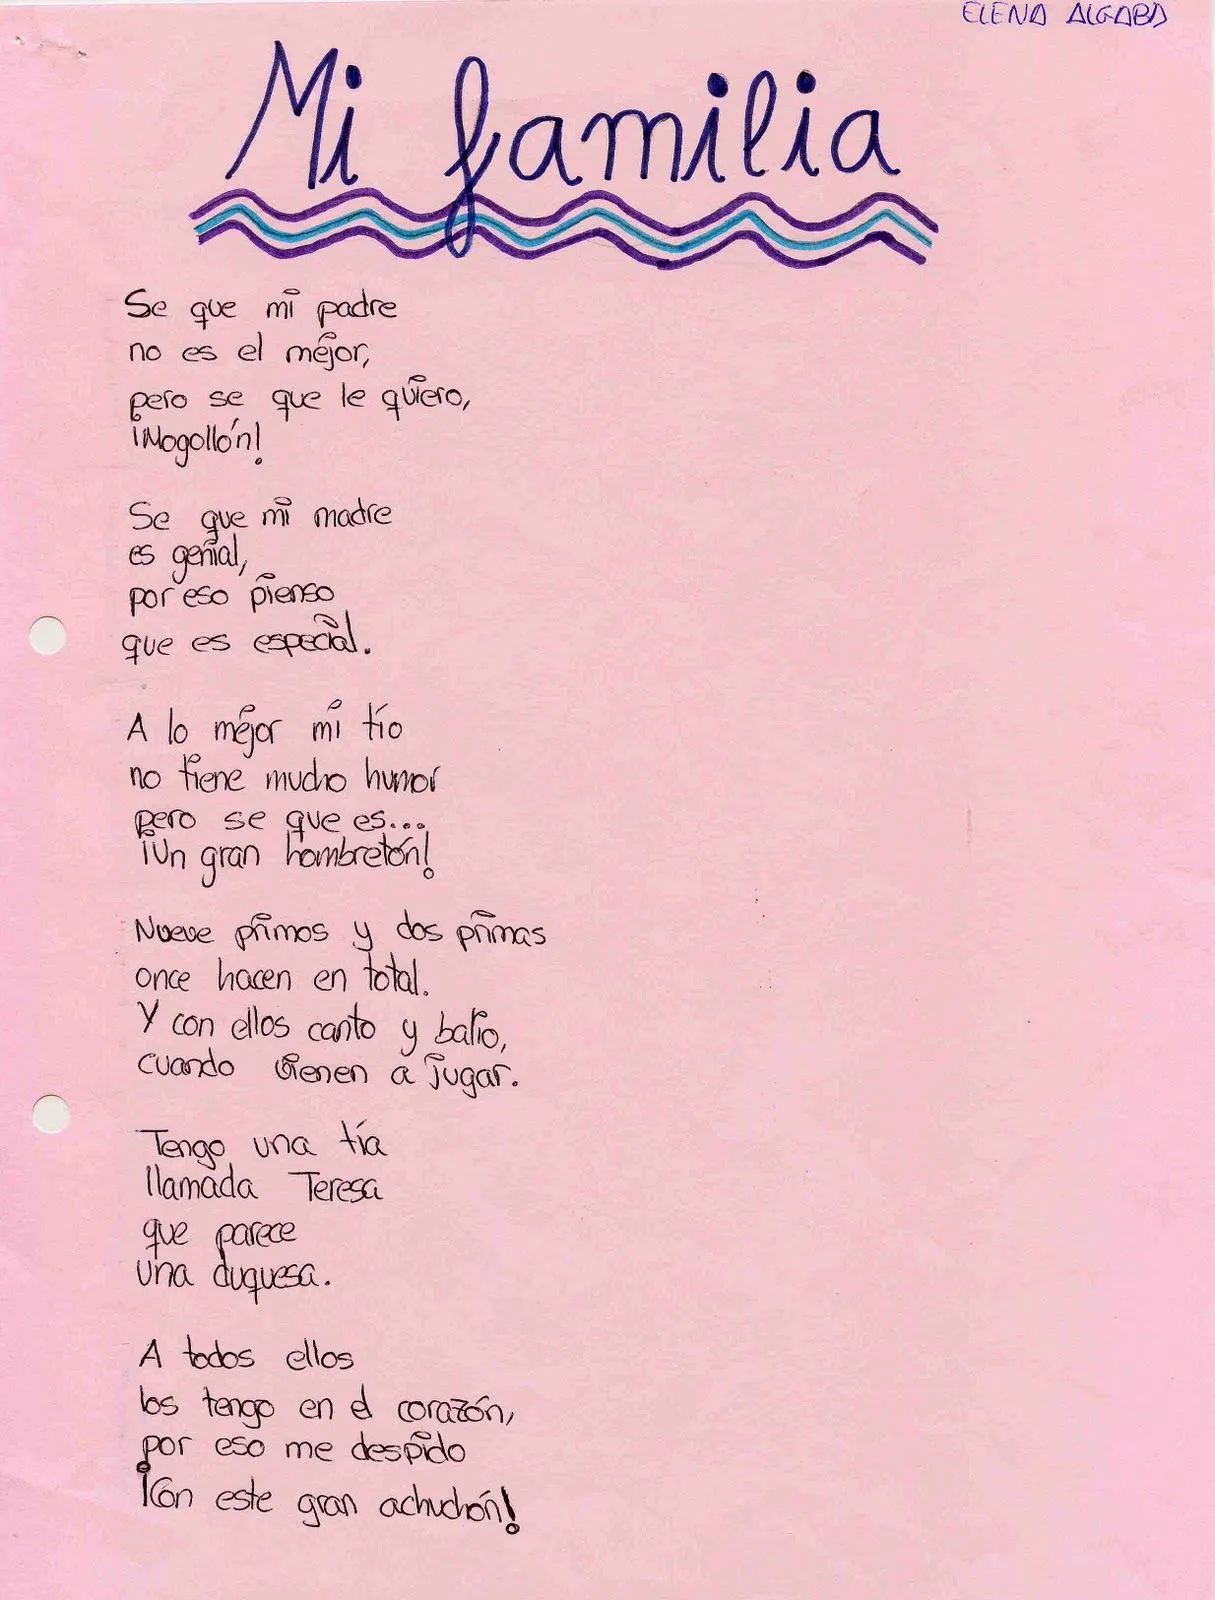 ELENA ALGABA
Mi familia
Se que mi padre
no es el mejor,
pero se que le quiero,
¡Mogollón!
Se que mi madre
es genial,
por eso pienso
que es especial.
A lo mejor mi tío
no tiene mucho humor
pero se que es...
¡Un gran hombretón!
Nueve primos y dos primas
once hacen en total.
Y con ellos canto y bailo,
cuando vienen a jugar.
Tengo una tía
llamada Teresa
que parece
una duquesa.
A todos ellos
los tengo en el corazón,
por eso me despido
¡Con este gran achuchón!